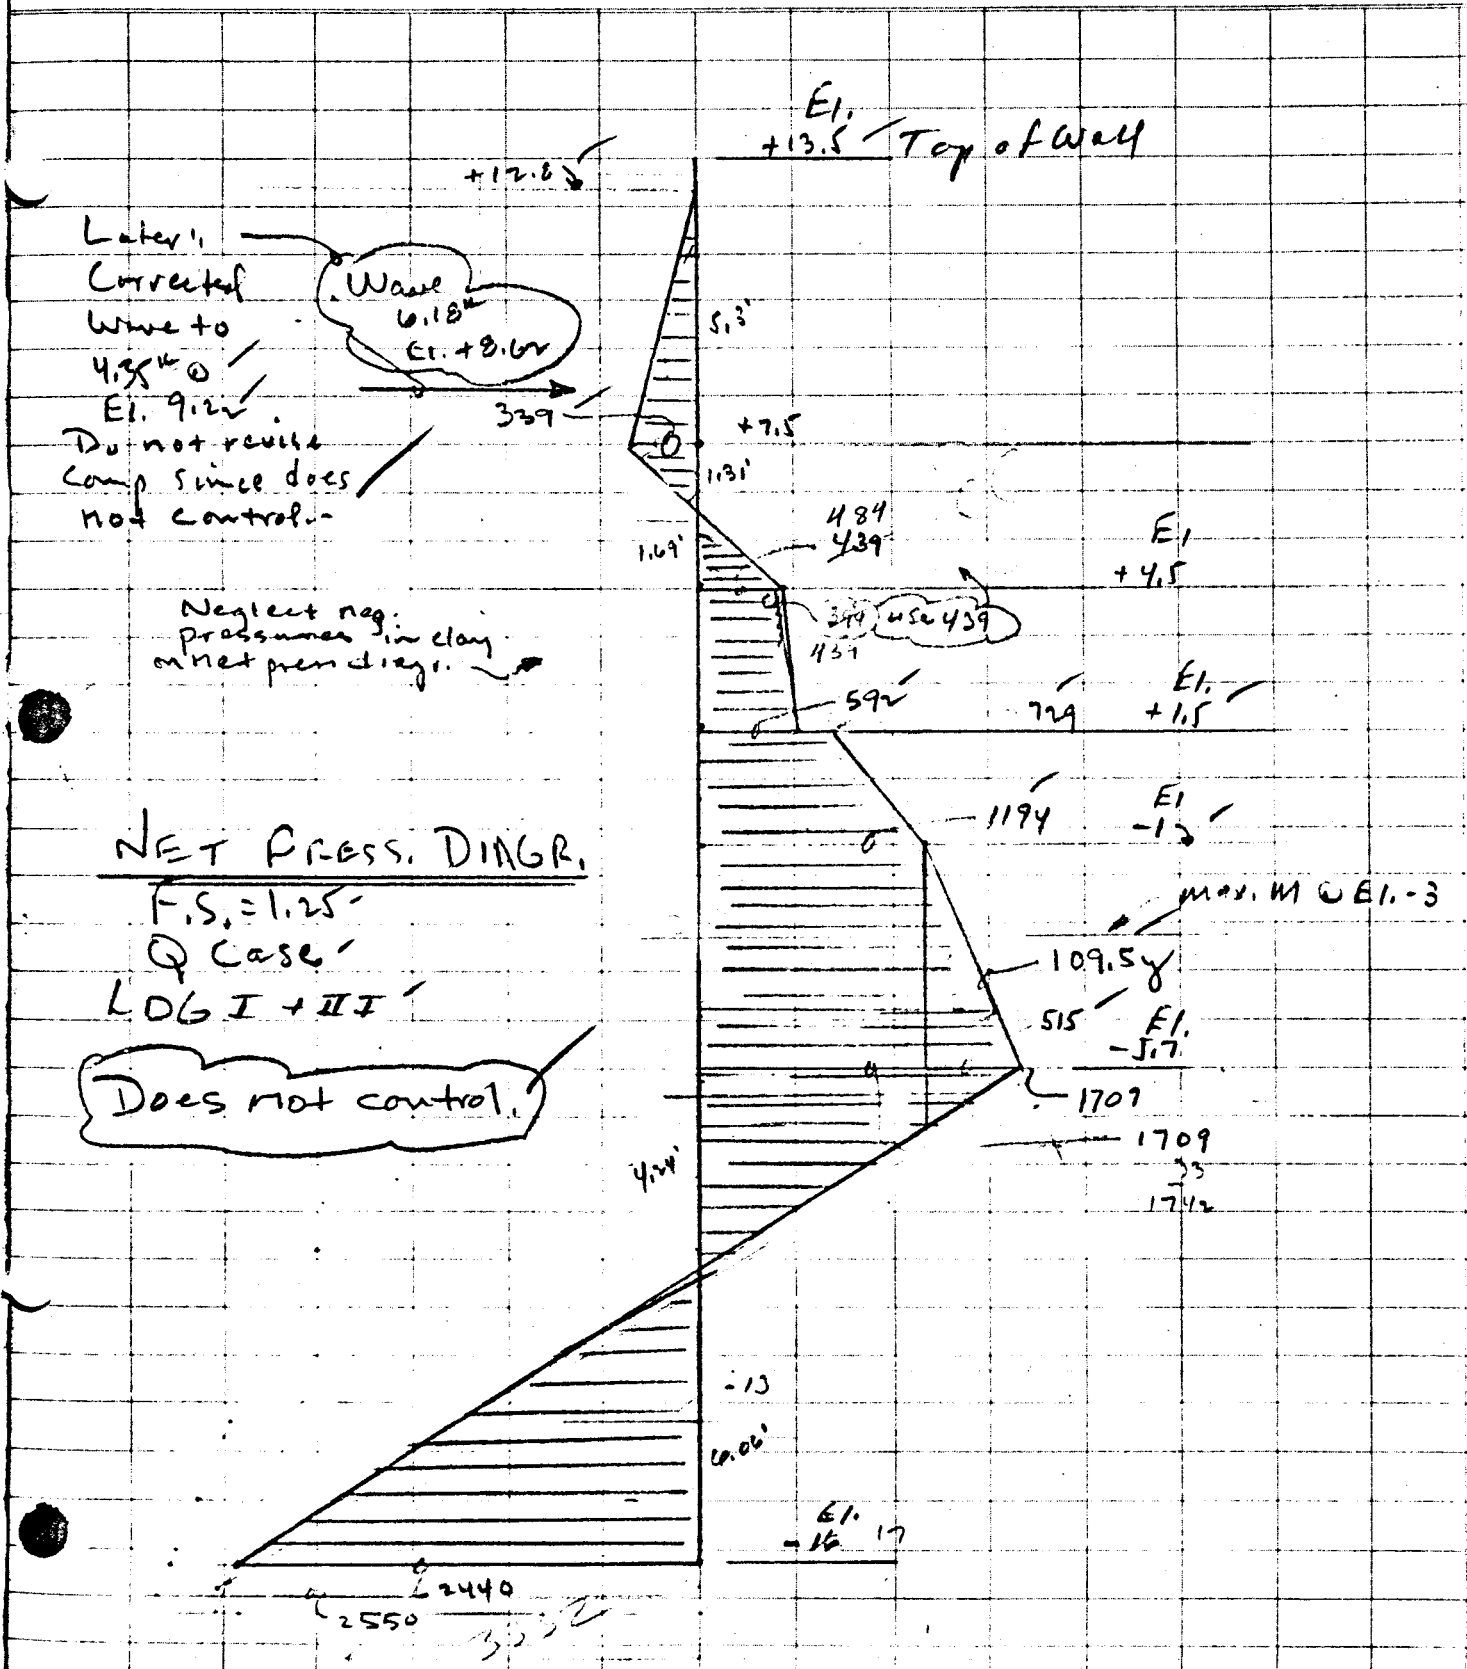 El.
+13.5 Top of Wall
+12.8
Later,
Corrected
wave to
4.35ᵏ @
El. 9.22.
Do not revise
comp since does
not control.
Wave
6.18ᵏ
El. +8.62
5.3'
339
+7.5
1.31'
1.69'
484
439
El
+4.5
use 439
439
Neglect neg.
pressures in clay
on net press diagr.
592
729
El.
+1.5
1194
El
NET PRESS. DIAGR.
F.S. = 1.25
Q Case
LDG I + III
Does not control.
max. M @ El. -3
109.5y
515
El.
-5.7
1709
1709
33
1742
4.24'
-13
6.06'
El.
-16 17
2440
2550